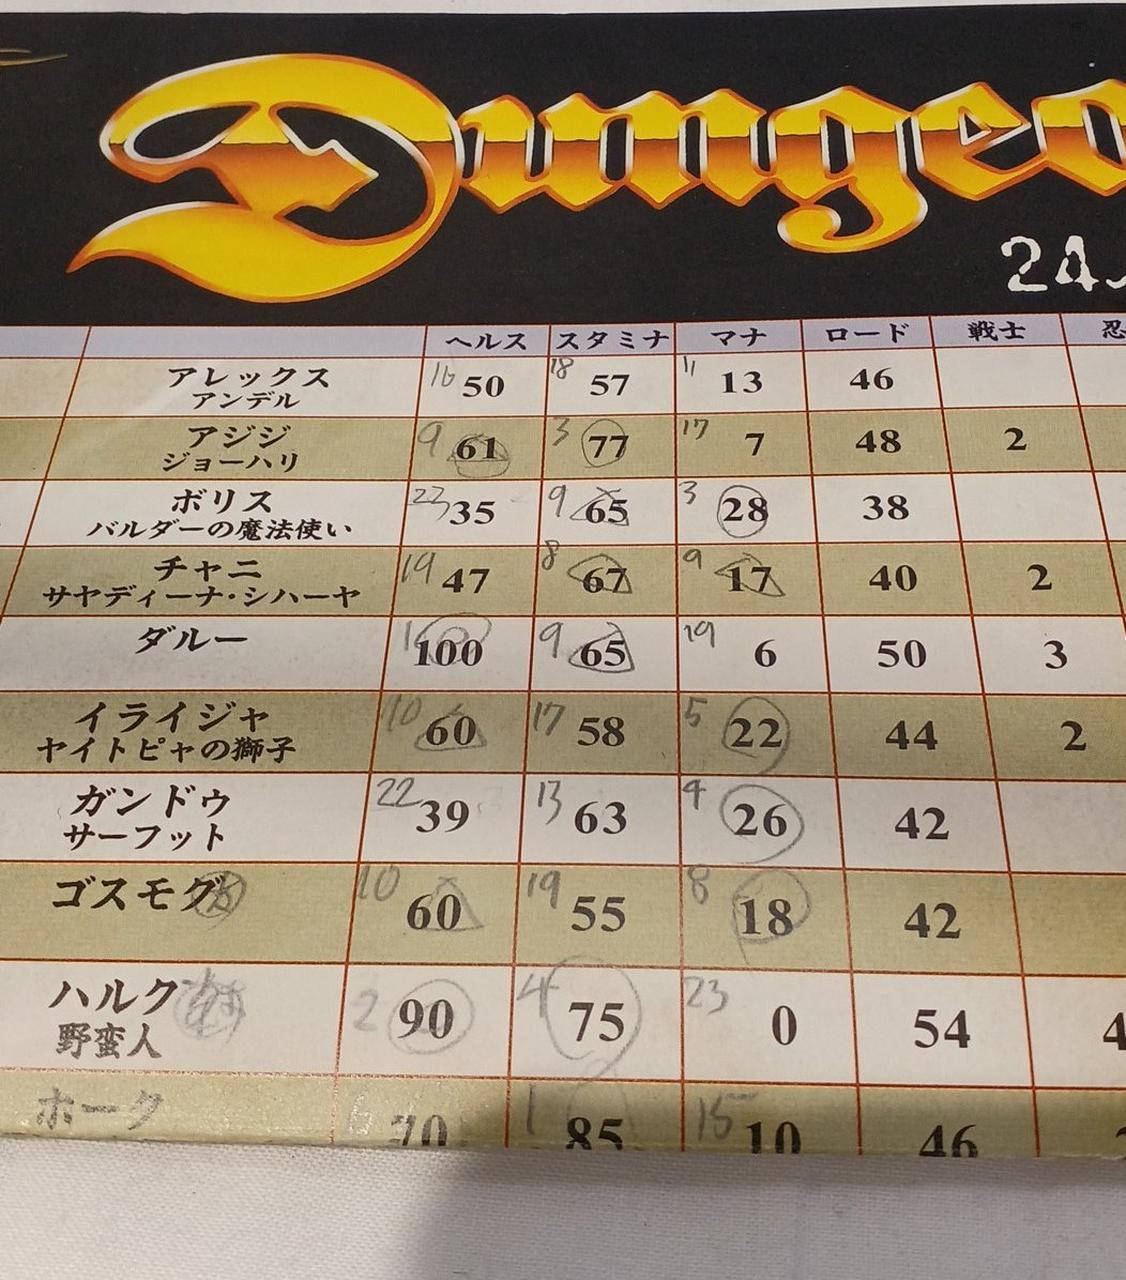 Dungeo
24
ヘルス スタミナ マナ ロード 戦士 忍
アレックス
アンデル
16 50 18 57 11 13 46
アジジ
ジョーハリ
9 61 3 77 17 7 48 2
ボリス
バルダーの魔法使い
23 35 9 65 3 28 38
チャニ
サヤディーナ・シハーヤ
19 47 8 67 9 17 40 2
ダルー
1 100 9 65 19 6 50 3
イライジャ
ヤイトピャの獅子
10 60 17 58 5 22 44 2
ガンドゥ
サーフット
22 39 13 63 4 26 42
ゴスモグ
10 60 19 55 8 18 42
ハルク
野蛮人
2 90 4 75 23 0 54 4
ホーク
70 1 85 15 10 46